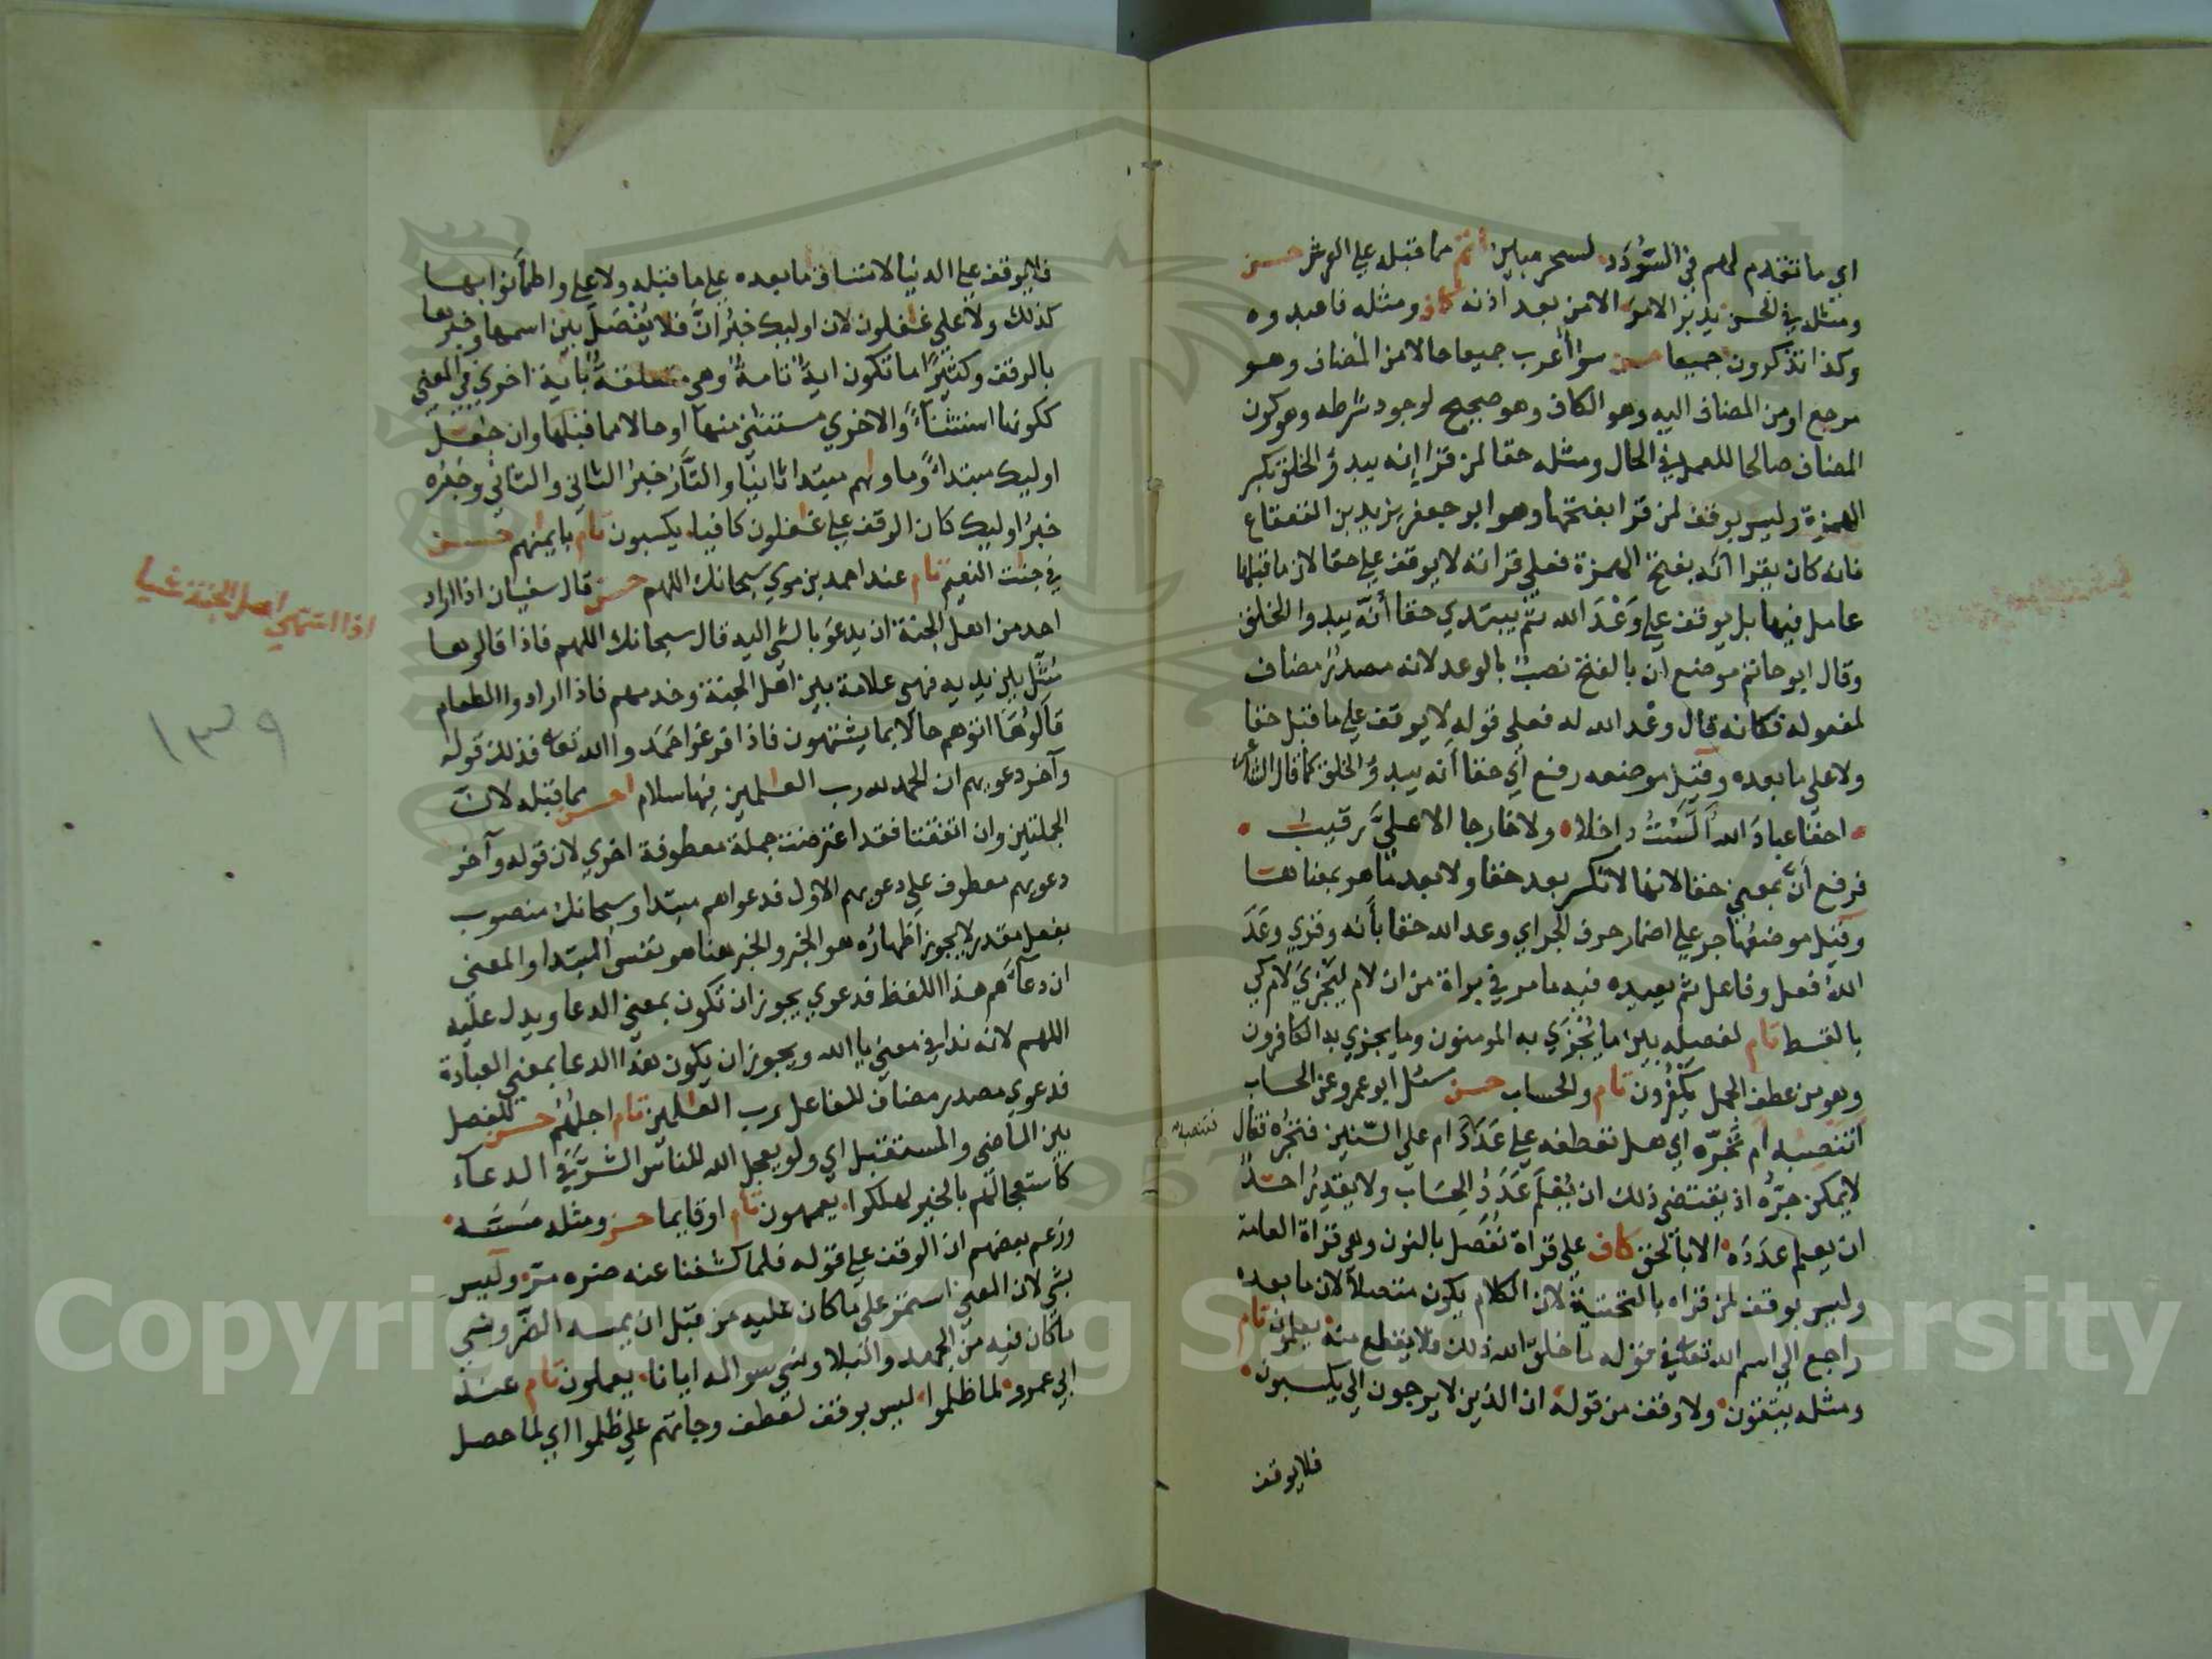 اي ما تقدم لهم في السُّؤْدَد لسحر مبين اتم مما قبله علي العرش حسن
ومثله في الحسن يدبر الامر الامن بعد اذنه كاف ومثله فاعبدوه
وكذا تذكرون جميعا حسن سوا أعرب جميعا حالا من المضاف وهو
مرجع او من المضاف اليه وهو الكاف وهو صحيح لوجود شرطه وهو كون
المضاف صالحا للعمل في الحال ومثله حقا لمن قرا إنه يبدؤ الخلق بكسر
الهمزة وليس بوقف لمن قرا بفتحها وهو ابو جعفر يزيد بن القعقاع
فانه كان يقرا أنه بفتح الهمزة فعلي قراته لا يوقف علي حقا لان ما قبلها
عامل فيها بل يوقف علي وَعْدَ الله ثم يبتدي حقا أنّه يبدوا الخلق
وقال ابو حاتم موضع أن بالفتح نصبٌ بالوعد لانه مصدرٌ مضاف
لمفعوله فكانه قال وعْد الله له فعلي قوله لا يوقف علي ما قبل حقا
ولا علي ما بعده وقيل موضعه رفع أي حقا أنه يبدؤ الخلق كما قال الشاعر
احقا عبادَ اللهِ أن لَسْتُ داخلا ولا خارجا الا عليَّ رقيبُ
فرفع أنَّ بمعني حقا لانها لا تكسر بعد حقا ولا بعد ما هو بمعناها
وقيل موضعُها جر علي اضمار حرف الجر اي وعد الله حقا بأنه وقري وعَدَ
اللهُ فعل وفاعل ثم يعيده فيه ما مر في براة من ان لام لِيَجْزيَ لام كي
بالقسط تام لفصله بين ما يُجْزَي به المومنون وما يجزي به الكافرون
وهو من عطف الجمل يَكْفُرُون تام والحساب حسن سئل ابو عمرو عن الحساب
اتنصبه ام تجُرّه اي هل تعطفه علي عَدَدَ ام علي السّنين فتجُرّه فقال
لا يمكن جَرُّه اذ يقتضي ذلك ان يُعْلَم عَدَدُ الحِسَاب ولا يقدِرُ احدٌ
ان يعلم عدَدَه الا بالحق كاف علي قراة نُفَصّل بالنون وهي قراة العامة
وليس بوقف لمن قراه بالتحتية لان الكلام يكون متصلا لان ما بعده
راجع الي اسم الله تعالي في قوله ما خلق الله ذلك فلا يقطع منه يعلمون تام
ومثله يتقون ولا وقف من قوله ان الذين لا يرجون الي يكسبون
فلا يوقف
فلا يوقف علي الدنيا لاتساق ما بعده علي ما قبله ولا علي واطمأنوا بها
كذلك ولا علي غفلون لان اوليك خبرُ انَّ فلا يُفْصَل بين اسمها وخبرها
بالوقف وكثيرًا ما تكون ايةٌ تامةٌ وهي متعلقةٌ بأية اخري في المعني
ككونها استثنآءً والاخري مستثني منها او حالا مما قبلها وان جُعل
اوليك مبتدا وماوىهم مبتدا ثانيا والنَّار خبر الثاني والثاني وخبره
خبرُ اوليك كان الوقف علي غفلون كافيا يكسبون تام بايمنهم حسن
في جنت النعيم تام عند احمد بن موي سبحانك اللهم حسن قال سفيان اذا اراد
احد من اهل الجنة ان يدعوَ بالشي اليه قال سبحانك اللهم فاذا قالوها
مُثّل بين يديه فهي علامة بين اهل الجنة وخدمهم فاذا ارادوا الطعام
قالوُهَا اتوهم حالا بما يشتهون فاذا فرغوا حَمَدوا الله تعالي فذلك قوله
وآخر دعويهم ان الحمد لله رب العلمين فيها سلام احسن مما قبله لانَّ
الجملتين وان اتفقتا فقد اعترضت جملة معطوفة اخري لان قوله وآخر
دعويهم معطوف علي دعويهم الاول فدعواهم مبتدا وسبحانك منصوب
بفعل مقدر لا يجوز اظهارُه هو الخبر والخبر هنا هو نفس المبتدا والمعني
ان دعآءهم هذا اللفظ فدعوي يجوز ان تكون بمعني الدعا ويدل عليه
اللهم لانه ندا في معني يا الله ويجوز ان يكون هذا الدعا بمعني العبادة
فدعوي مصدر مضاف للفاعل رب العلمين تام اجلُهم حسن للفصل
بين الماضي والمستقبل اي ولو يعجل الله للناس الشرَّ في الدعآء
كاستعجالهم بالخير لهلكوا يعمهون تام او قايما حسن ومثله مسَّه
وزعم بعضهم ان الوقف علي قوله فلما كشفنا عنه ضره مرّ وليس
بشي لان المعني استمر علي ما كان عليه من قبل ان يمسه الضر ونسي
ما كان فيه من الجهد والبلا ونسي سواله ايانا يعملون تام عند
ابي عمرو لما ظلموا ليس بوقف لعطف وجاتهم علي ظلموا اي لما حصل
اذا اشتهي اهل الجنة شيا
١٣٩
Copyright © King Saud University
1957